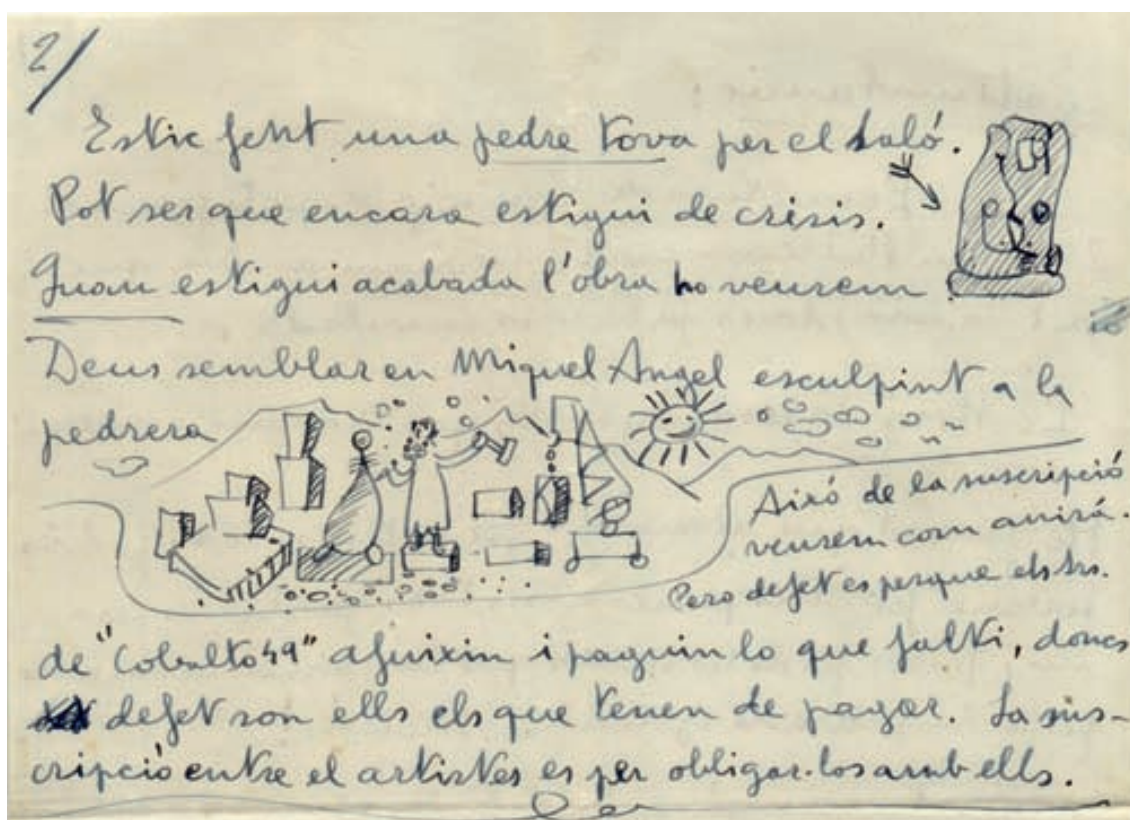 2/
Estic fent una pedre tova per el saló.
Pot ser que encara estigui de crisis.
Quan estigui acabada l'obra ho veurem
Deus semblar en Miquel Angel esculpint a la
pedrera
Aixó de la suscripció
veurem com anirá.
Pero defet es perque els srs.
de "Cobalto 49" afluixin i paguin lo que falti, doncs
defet son ells els que tenen de pagar. La sus-
cripció entre el artistes es per obligar-los amb ells.